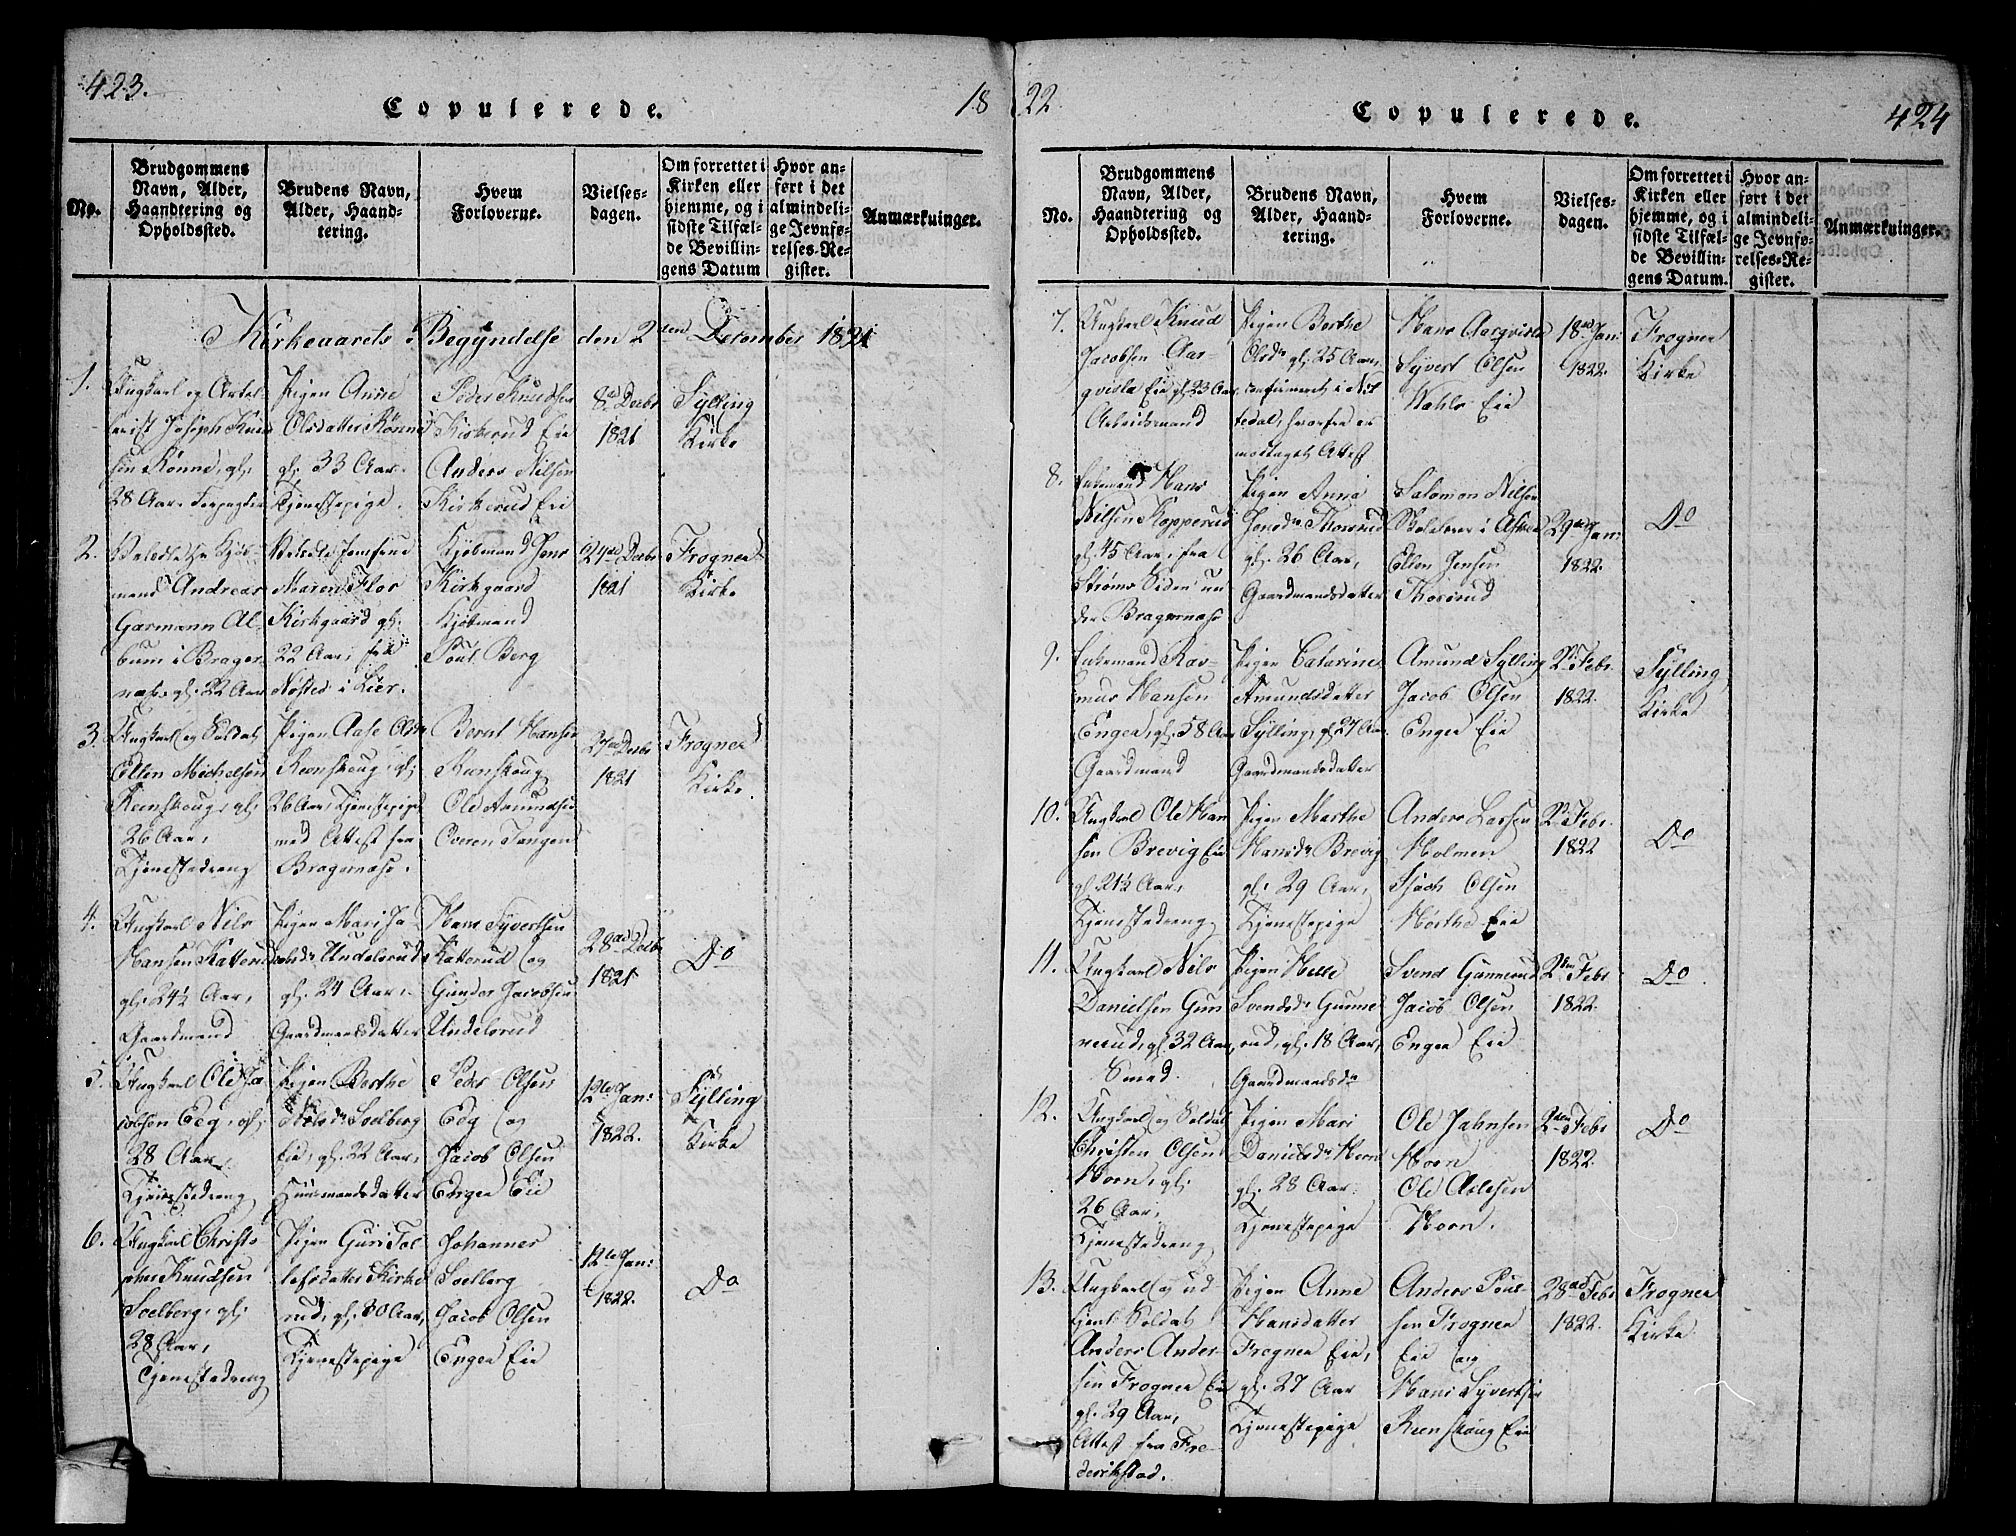 423.
Copulerede.
18
No.
Brudgommens Navn, Alder, Haandtering og Opholdssted.
Brudens Navn, Alder, Haandtering.
Hvem Forloverne.
Vielsesdagen.
Om forrettet i Kirken eller hjemme, og i sidste Tilfælde Bevillingens Datum
Hvor anført i det almindelige Jevnførelses-Register.
Anmærkninger.
Kirkeaarets Begyndelse den 2den December 1821
1.
Ungkarl og
Joseph Knud
sen Rønne, gl.
28 Aar
Pigen Anne
Olsdatter Rønne
gl. 33 Aar
Tjenestepige.
Peder Knudsen
Kirkerud Eie
Anders Nilsen
Kirkerud Eie
8de Decbr
1821
Sylling
Kirke
2.
Kjøb-
mand Andreas
Garmann Al-
bum i Brager-
næs, gl. 22 Aar
Jomfrue
Maren Flor
Kirkgaard gl.
22 Aar, fra
Nøsted i Lier.
Kjøbmand Jens
Kirkgaard
Kjøbmand
Poul Berg
24de Decbr
1821
Frogner
Kirke
3.
Ungkarl og Soldat
Ellen Michelsen
Reenskoug, gl.
26 Aar,
Tjenestedreng
Pigen Aase Olsdr
Reenskoug, gl.
26 Aar, Tjenestepige
med Attest fra
Bragernæs.
Bernt Hansen
Reenskoug
Ole Amundsen
Overen Tangen
27de Decbr
1821
Frogner
Kirke.
4.
Ungkarl Nils
Hansen Katterud
gl. 24½ Aar,
Gaardmand
Pigen Mari Ja-
cobsdr Undelsrud
gl. 24 Aar,
Gaardmandsdatter
Hans Syvertsen
Katterud og
Gunder Jacobsen
Undelsrud
28de Decbr
1821
Do
5.
Ungkarl Ole Ja-
cobsen Eeg, gl.
28 Aar,
Tjenestedreng
Pigen Berthe
Nilsdr Soelberg
Eie, gl. 22 Aar,
Huusmandsdatter
Peder Olsen
Eeg og
Jacob Olsen
Enger Eie
12te Jan:
1822.
Sylling
Kirke
6.
Ungkarl Christo
pher Knudsen
Soelberg, gl.
28 Aar,
Tjenestedreng
Pigen Guri Tol
lefsdatter Kirke
rud, gl. 30 Aar,
Tjenestepige
Johannes
Soelberg
Jacob Olsen
Enger Eie
12te Jan:
1822.
Do
22.
Copulerede.
424
No.
Brudgommens Navn, Alder, Haandtering og Opholdssted.
Brudens Navn, Alder, Haandtering.
Hvem Forloverne.
Vielsesdagen.
Om forrettet i Kirken eller hjemme, og i sidste Tilfælde Bevillingens Datum.
Hvor anført i det almindelige Jevnførelses-Register.
Anmærkninger.
7.
Ungkarl Knud
Jacobsen Aar-
qvisla Eie gl. 23 Aar
Arbeidsmand
Pigen Berthe
Olsdr gl. 25 Aar,
confirmeret i Nit
tedal, hvorfra er
modtaget Attest
Hans Aarqvisla
Syvert Olsen
Wahls Eie
18de Jan:
1822.
Frogner
Kirke
8.
Enkemand Hans
Nilsen Kopperud
gl. 45 Aar, fra
Strøms Siden un
der Bragernæs
Pigen Anna
Jensdr Thosrud
gl. 26 Aar,
Gaardmandsdatter
Salomon Nilsen
Skoleholder i Asker
Ellen Jensen
Thosrud
29de Jan:
1822.
Do
9.
Enkemand Ras-
mus Hansen
Enger, gl. 58 Aar
Gaardmand
Pigen Catarine
Amundsdatter
Sylling, gl. 27 Aar
Gaardmandsdatter
Amund Sylling
Jacob Olsen
Enger Eie
2den Febr
1822.
Sylling
Kirke
10.
Ungkarl Ole Han
sen Brevig Eie
gl. 21½ Aar,
Tjenestedreng
Pigen Marthe
Hansdr Brevig
gl. 29 Aar,
Tjenestepige
Anders Larsen
Holmen
Isach Olsen
Hørthe Eie
2den Febr.
1822
Do
11.
Ungkarl Nils
Danielsen Gun
nerud, gl. 32 Aar,
Smed.
Pigen Helle
Svendsdr Gunne
rud, gl. 18 Aar,
Gaardmandsdr
Svend Gunnerud
Jacob Olsen
Enger Eie
2den Febr
1822.
Do
12.
Ungkarl og Soldat
Christen Olsen
Horn, gl.
26 Aar,
Tjenestedreng
Pigen Mari
Danielsdr Horn
gl. 28 Aar
Tjenestepige
Ole Jahnsen
Horn
Ole Axelsen
Horn.
2den Febr
1822.
Do
13.
Ungkarl og ud
tjent Soldat
Anders Ander-
sen Frogner Eie
gl. 29 Aar,
Attest fra Fre-
derikstad.
Pigen Anne
Hansdatter
Frogner Eie,
gl. 27 Aar
Tjenestepige
Anders Poul
sen Frogner
Eie og
Hans Syvertsen
Reenskoug Eie
28de Febr
1822.
Frogner
Kirke